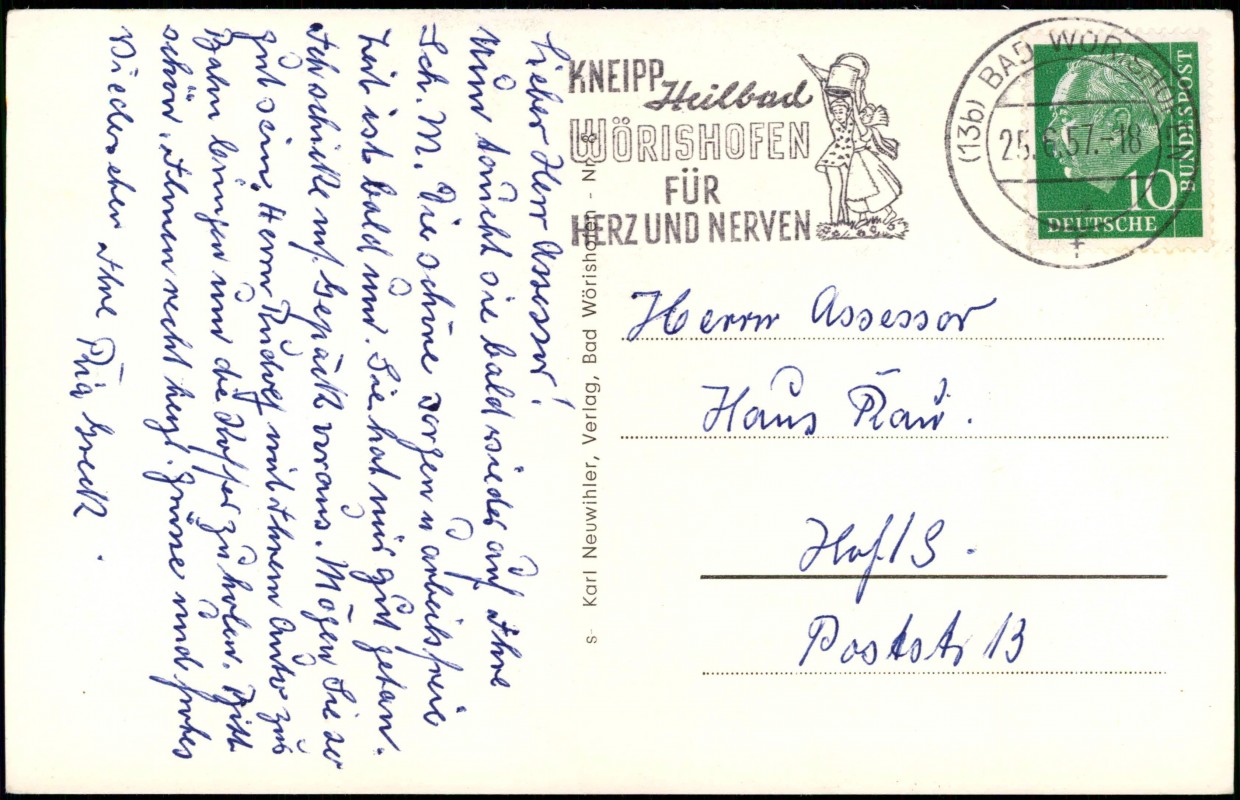 Lieber Herr Assessor!
Nun taucht sie bald wieder auf Ihre
Sch. M. Die schöne sorgen u arbeitsfreie
Zeit ist bald um. Sie hat mir gut getan.
Ich schicke m. Gepäck voraus. Mögen Sie so
gut sein, Herrn Rudolf mit Ihrem Auto zur
Bahn bringen um die Koffer zu holen. Bitt
schön. Ihnen recht herzl. Grüsse und frohes
Wiedersehen Ihre
KNEIPP
Heilbad
WÖRISHOFEN
FÜR
HERZ UND NERVEN
(13b) BAD WÖRISHOFEN
25.6.57.-18
DEUTSCHE
BUNDESPOST
10
s- Karl Neuwihler, Verlag, Bad Wörishofen -
Herrn Assessor
Hans Rau.
Hof/S.
Poststr 13